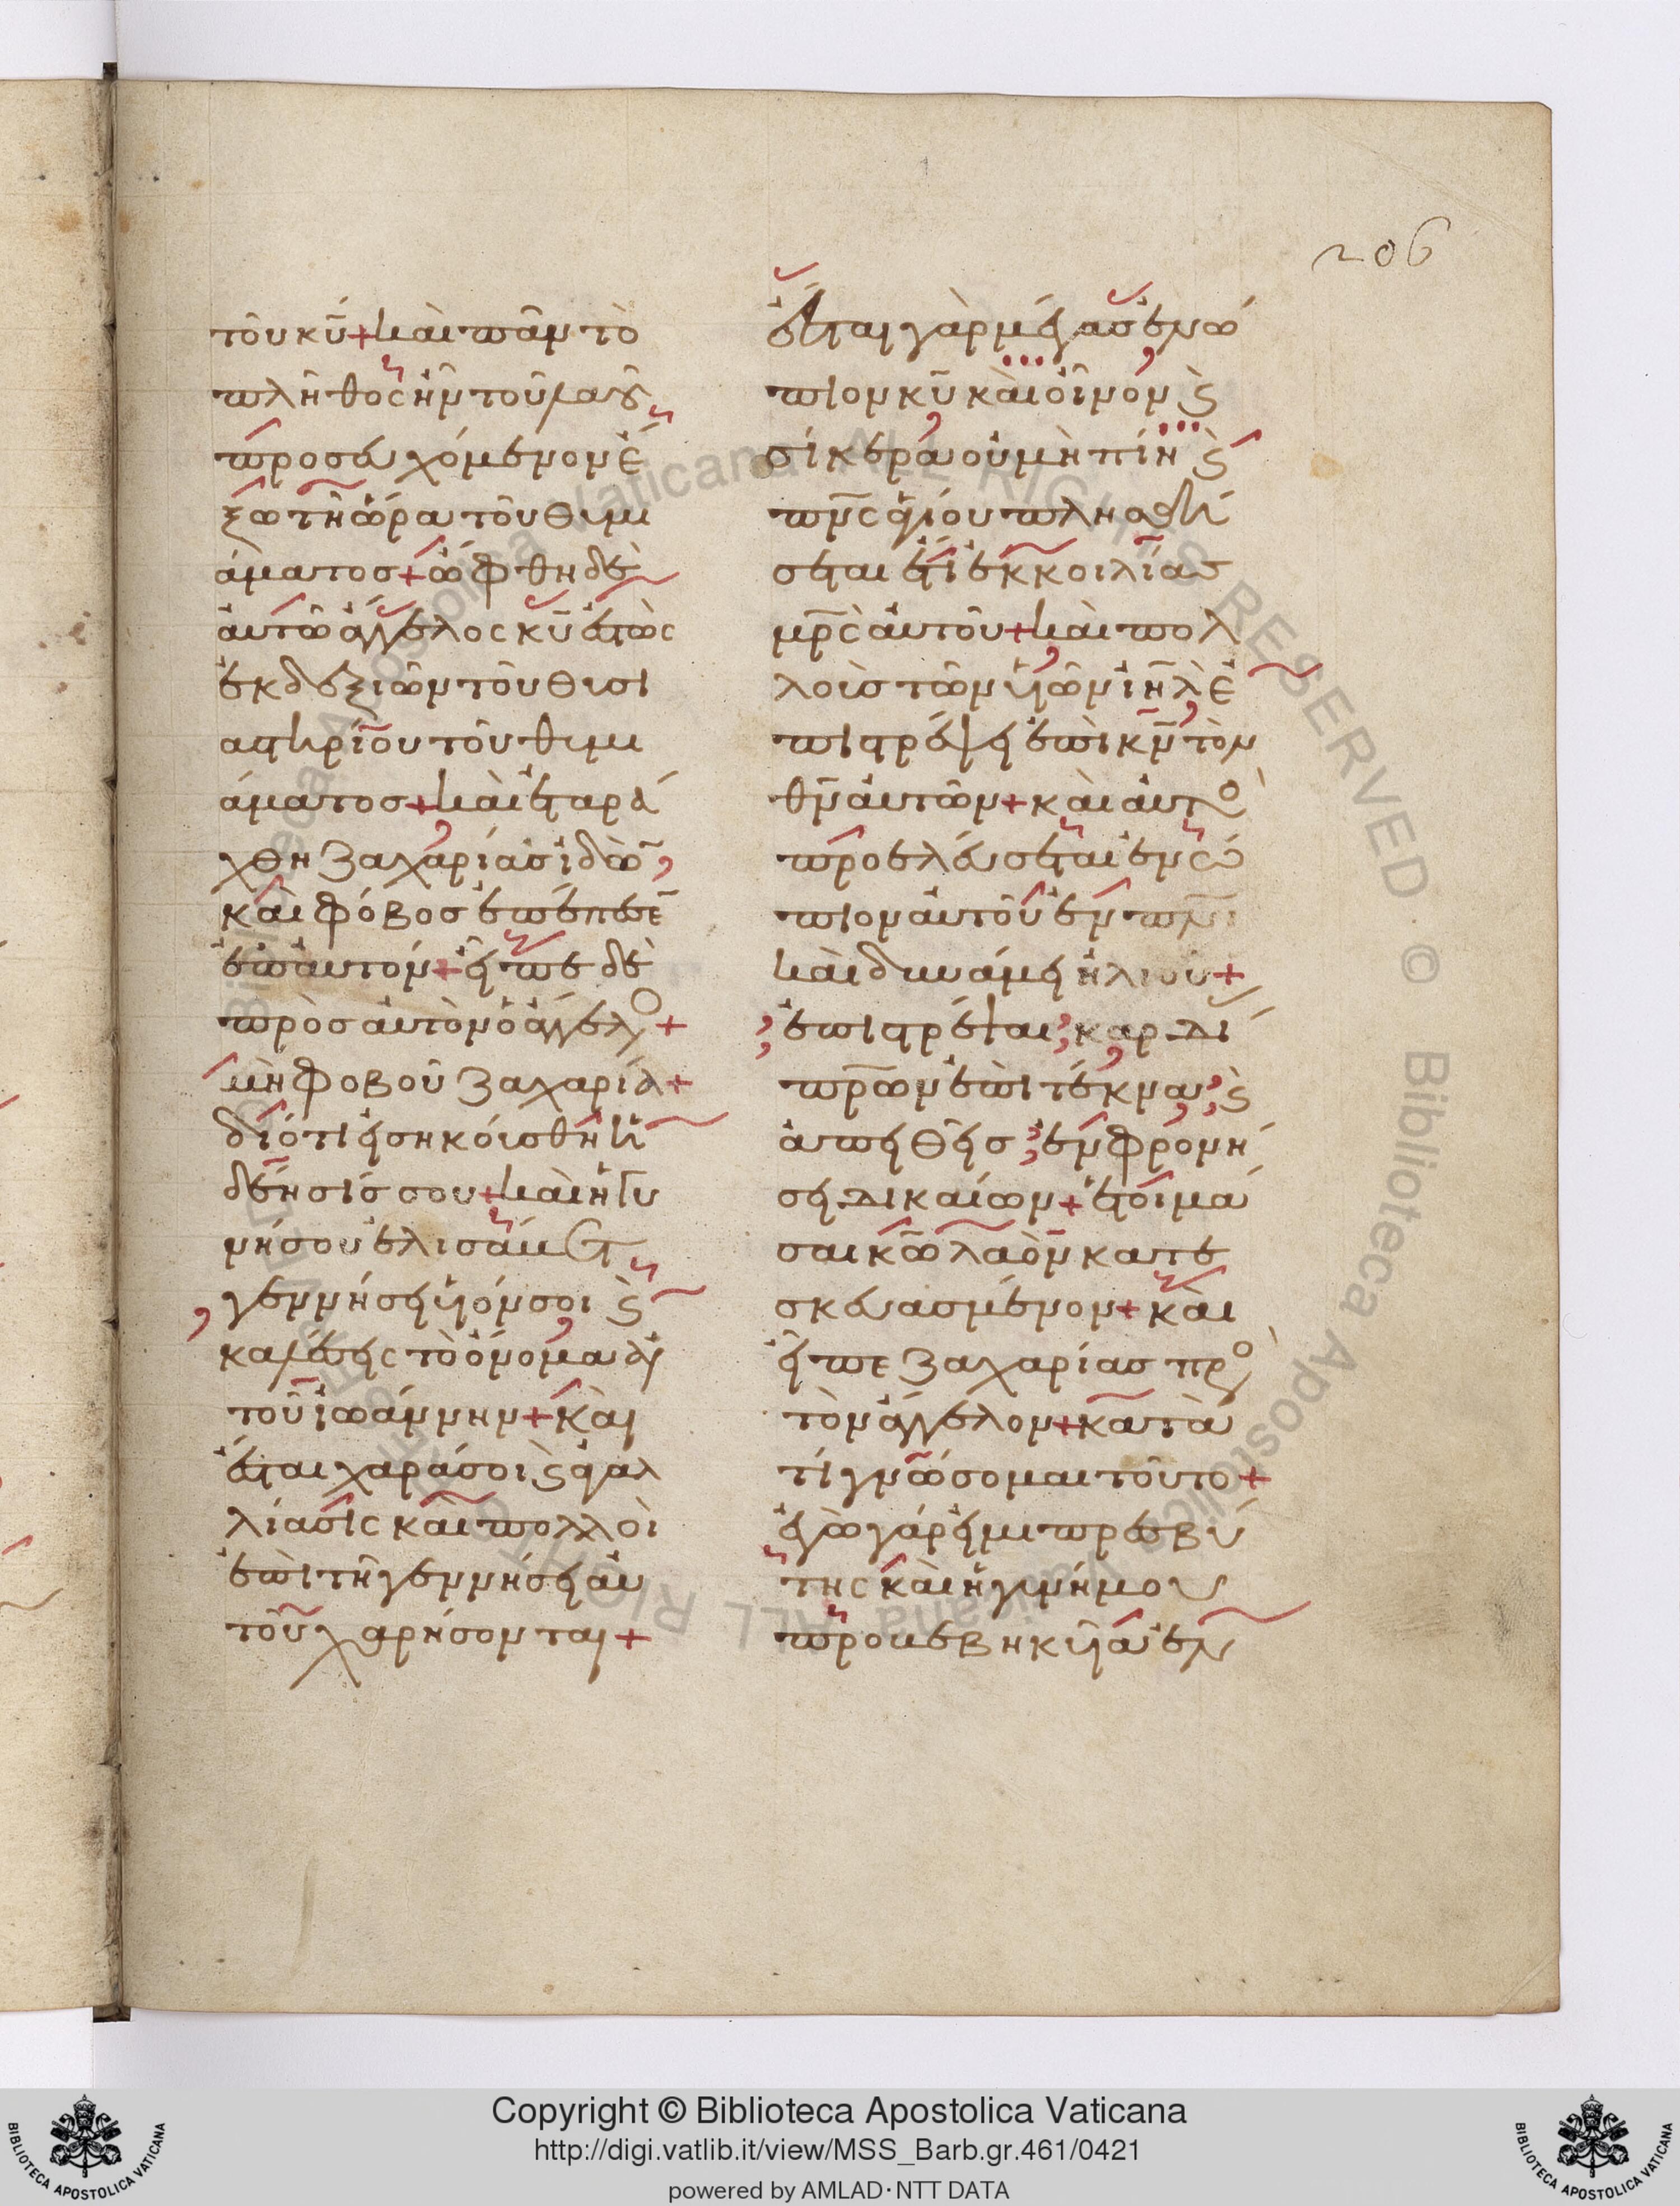 206
τοῦ κῦ + καὶ πᾶν τὸ
πλῆθος ἦν τοῦ λαοῦ
προσευχόμενον ἔ
ξω τῆ ὥρα τοῦ θυμι
άματος + ὤφθη δὲ
αὐτῶ ἄγγελος κῦ ἑστὼς
ἐκ δεξιῶν τοῦ θυσι
αστηρίου τοῦ θυμι
άματος + καὶ ἐταρά
χθη Ζαχαρίας ἰδὼ
καὶ φόβος ἐπέπεσε
ἐπ αὐτόν + εἶπε δὲ
πρὸς αὐτὸν ὁ ἄγγελο +
μὴ φοβοῦ Ζαχαρία +
διότι εἰσηκούσθη ἡ
δέησίς σου + καὶ ἡ γυ
νή σου ἐλισάβετ
γεννήσει υἱόν σοι ϛ
καλέσεις τὸ ὄνομα αὐ
τοῦ ἰωάννην + καὶ
ἔσται χαρά σοι ϛ ἀγαλ
λίασις καὶ πολλοὶ
ἐπὶ τῆ γεννήσει αὐ
τοῦ χαρήσονται +
ἔσται γὰρ μέγας ἐνώ
πιον κῦ καὶ οἶνον ϛ
σίκερα οὐ μὴ πίη ϛ
πνς ἁγίου πλησθή
σεται ἔτι ἐκ κοιλίας
μρς αὐτοῦ + καὶ πολ
λοὺς τῶν υἱῶν ιηλ ἐ
πιστρέψει ἐπὶ κν τὸν
θν αὐτῶν + καὶ αὐτο
προελεύσεται ἐνώ
πιον αὐτοῦ ἐν πνι
καὶ δυνάμει ἠλιοῦ +
ἐπιστρέψαι καρδί
πρων ἐπὶ τέκνα ϛ
ἀπειθεῖς ἐν φρονή
σει δικαίων + ἑτοιμά
σαι κω λαὸν κατε
σκευασμένον + καὶ
εἶπε Ζαχαρίας προ
τὸν ἄγγελον + κατὰ
τί γνώσομαι τοῦτο +
ἐγὼ γάρ εἰμι πρεσβύ
της καὶ ἡ γυνή μου
προβεβηκυῖα ἐν
Copyright © Biblioteca Apostolica Vaticana
http://digi.vatlib.it/view/MSS_Barb.gr.461/0421
powered by AMLAD·NTT DATA